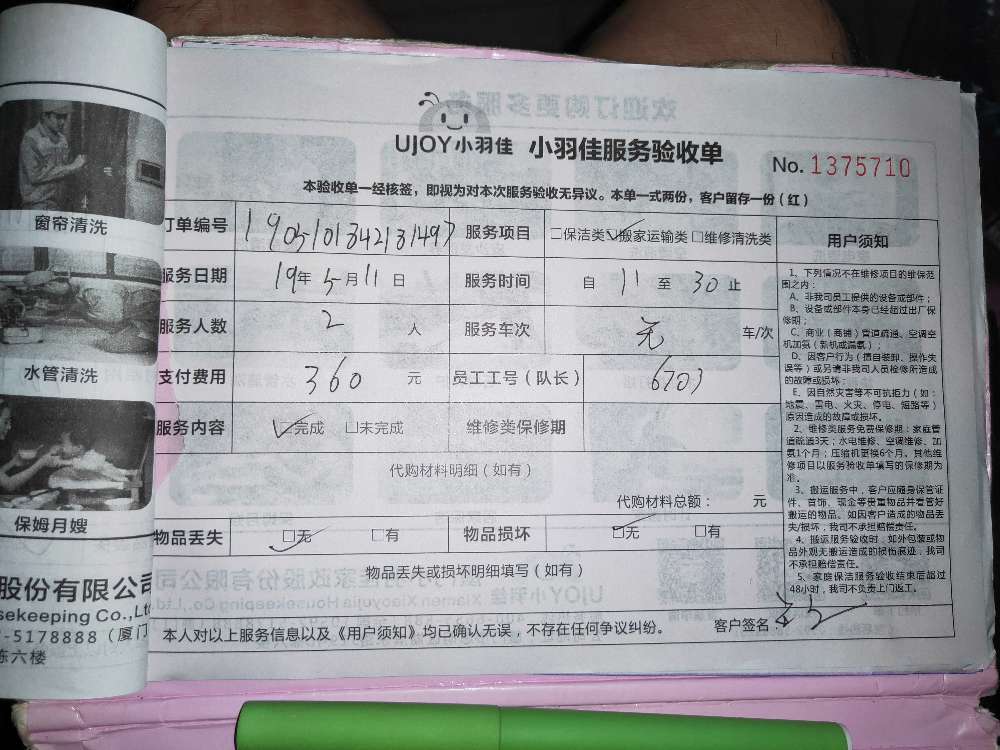 窗帘清洗
水管清洗
保姆月嫂
股份有限公司
sekeeping Co.,Lt
-5178888（厦门
栋六楼
UJOY小羽佳 小羽佳服务验收单
No. 1375710
本验收单一经核签，即视为对本次服务验收无异议。本单一式两份，客户留存一份（红）
订单编号 服务项目 □保洁类 ☑搬家运输类 □维修清洗类
服务日期 19年 5月 11日 服务时间 自 11 至 30 止
服务人数 2 人 服务车次 无 车/次
支付费用 360 元 员工工号（队长） 6703
服务内容 ☑完成 □未完成 维修类保修期
代购材料明细（如有）
代购材料总额： 元
物品丢失 ☑无 □有 物品损坏 ☑无 □有
物品丢失或损坏明细填写（如有）
本人对以上服务信息以及《用户须知》均已确认无误，不存在任何争议纠纷。 客户签名：
用户须知
1、下列情况不在维修项目的维保范
围之内：
A、非我司员工提供的设备或部件；
B、设备或部件本身已经超过出厂保
修期；
C、商业（商铺）管道疏通、空调空
机加氨（新机或漏氨）；
D、因客户行为（擅自装卸、操作失
误等）或另请非我司人员检修所造成
的故障或损坏；
E、因自然灾害等不可抗拒力（如：
地震、雷电、火灾、停电、短路等）
原因造成的故障或损坏。
2、维修类服务免费保修期：家庭管
道疏通3天；水电维修、空调维修、加
氨1个月；压缩机更换6个月。其他维
修项目以服务验收单填写的保修期为
准。
3、搬运服务中，客户应随身保管证
件、首饰、现金等贵重物品并看管好
搬运的物品。如因客户造成的物品丢
失/损坏，我司不承担赔偿责任。
4、搬运服务验收时，如外包装或物
品外观无搬运造成的损伤痕迹，我司
不承担赔偿责任。
5、家庭保洁服务验收结束后超过
48小时，我司不负责上门返工。